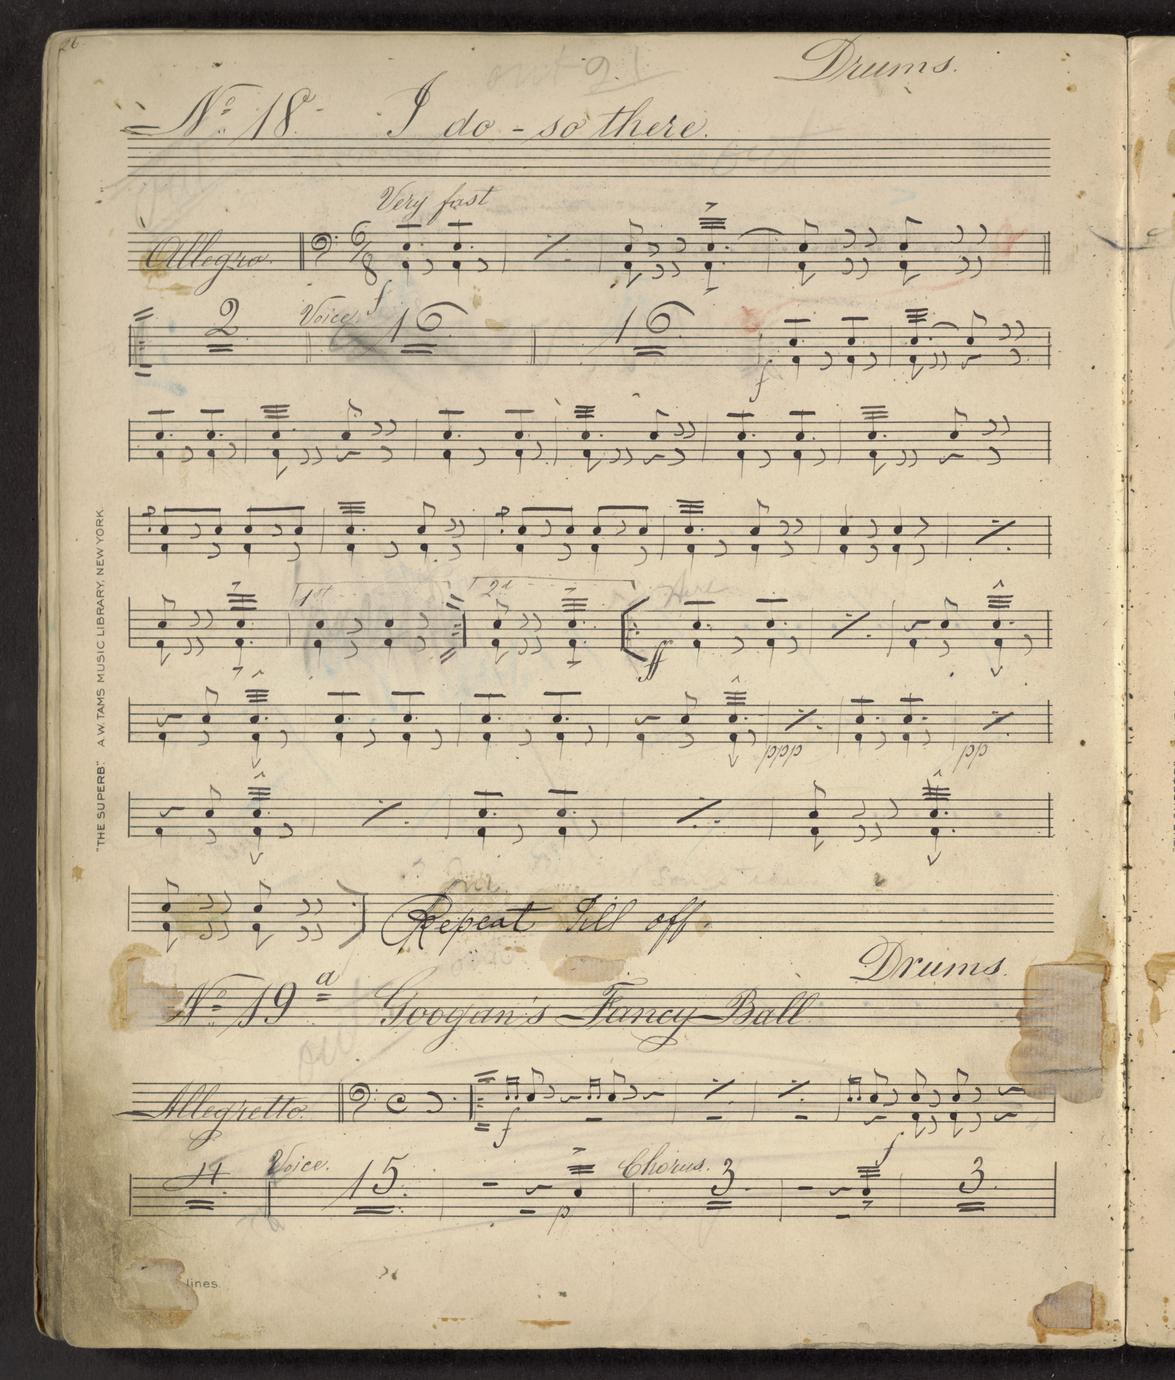 26.
out 21
Drums.
No. 18. I do - so there.
out
Very fast
Allegro. 6/8
f
2 Voice. 16 16
f
1st 2d
ff
ppp pp
Repeat Till off.
Drums.
No. 19 a Googan's Fancy Ball
out
Allegretto. C
f f
4 Voice. 15 Chorus. 3 3
p
"THE SUPERB" A.W. TAMS MUSIC LIBRARY, NEW YORK.
lines.